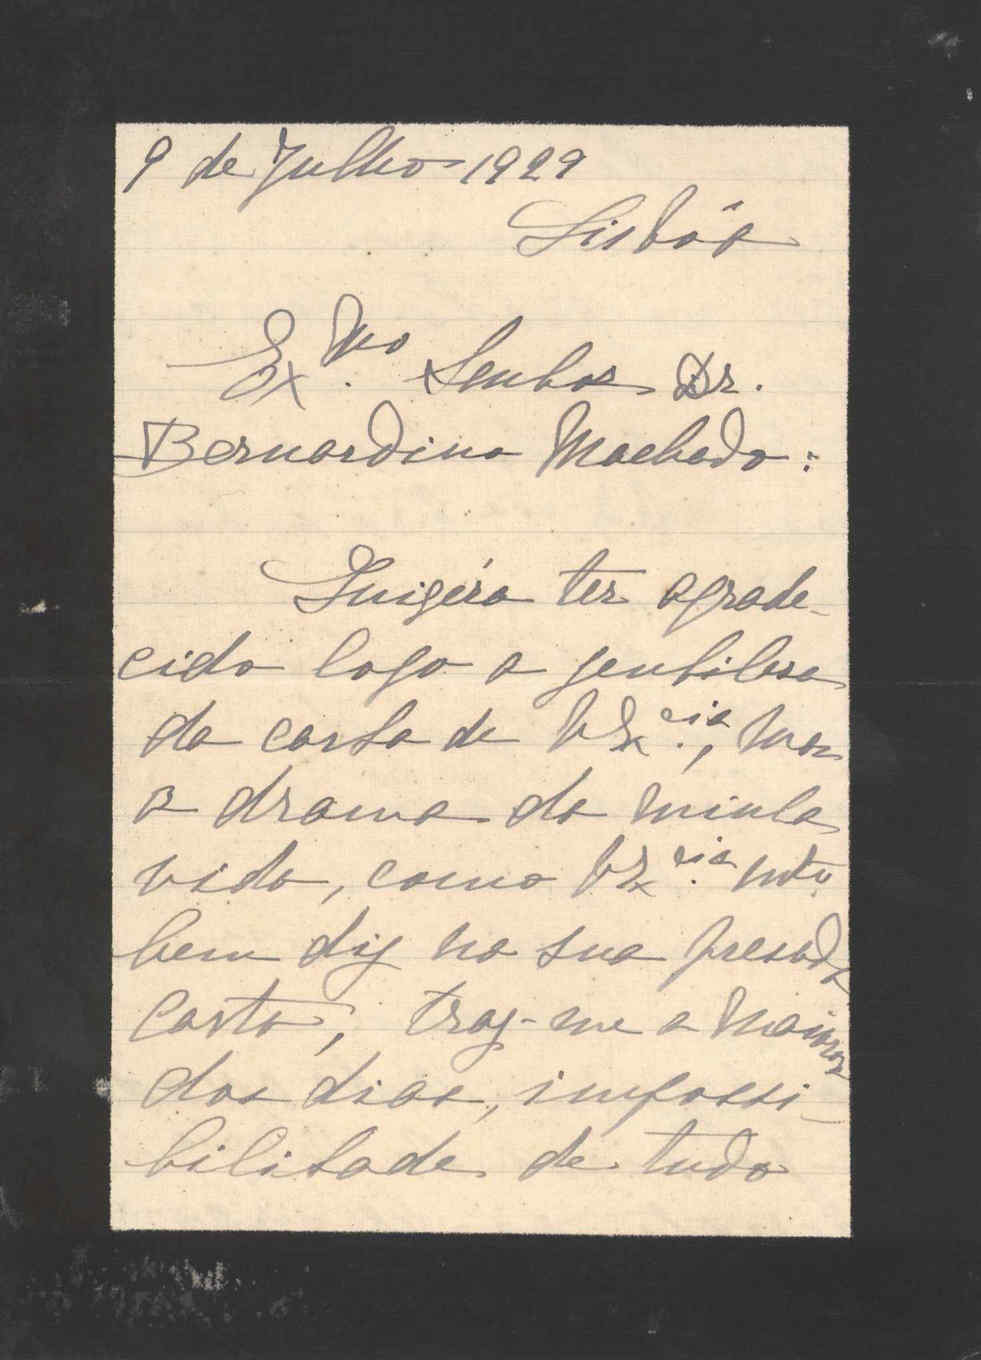 9 de Julho 1929
Lisbôa
Ex.mo Senhor Dr.
Bernardino Machado:
Quizéra ter agrade-
cido logo a gentileza
da carta de V. Ex.cia, mas
o drama da minha
vida, como V. Ex.cia mto
bem diz na sua presada
carta, traz-me a maioria
dos dias, impossi-
bilitade de tudo